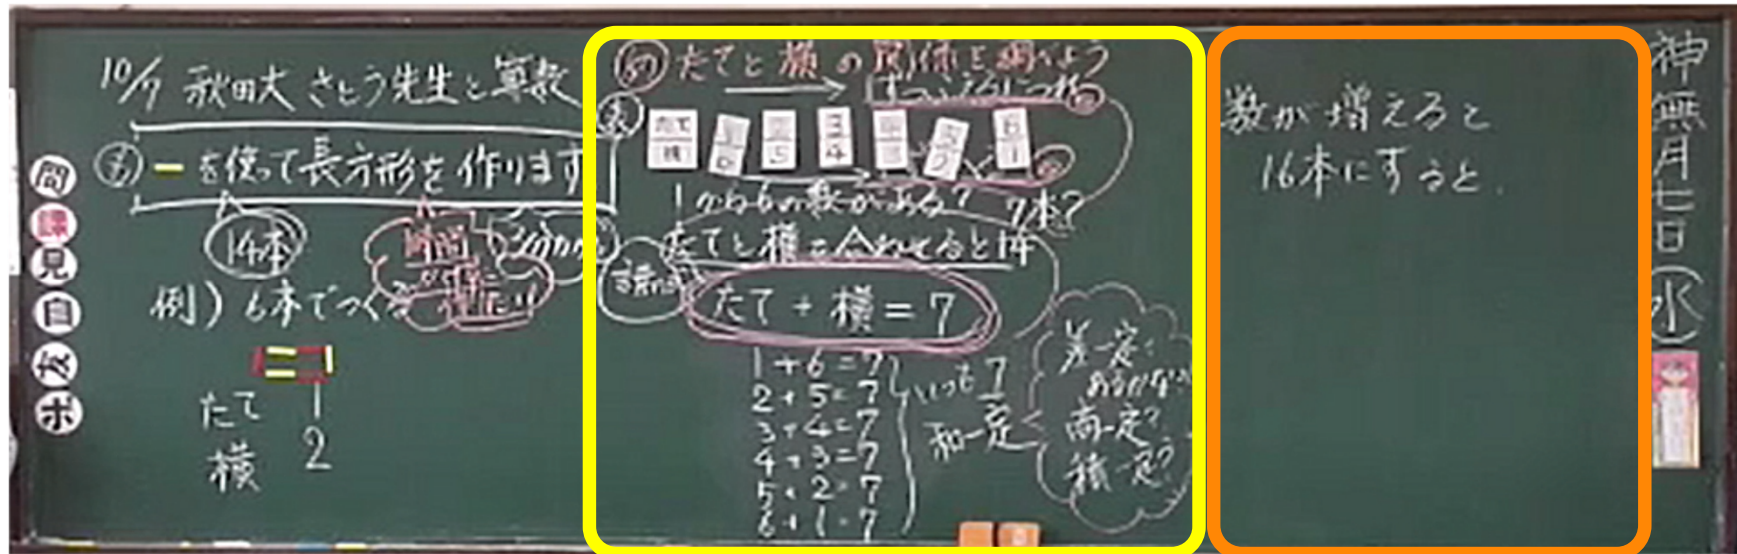 10/7 秋田大 さとう先生と算数
を使って長方形を作ります
14本
時間
例) 6本でつくる
たて 1
横 2
問
課
見
自
友
ボ
め たてと横の関係を調べよう
たて 横
1 6
2 5
3 4
4 3
5 2
6 1
1から6の数がある?
7本?
たてと横を合わせると14
たて + 横 = 7
1 + 6 = 7
2 + 5 = 7
3 + 4 = 7
4 + 3 = 7
5 + 2 = 7
6 + 1 = 7
いつも7
和一定
差一定?
商一定?
積一定?
数が増えると
16本にすると.
神無月七日(水)